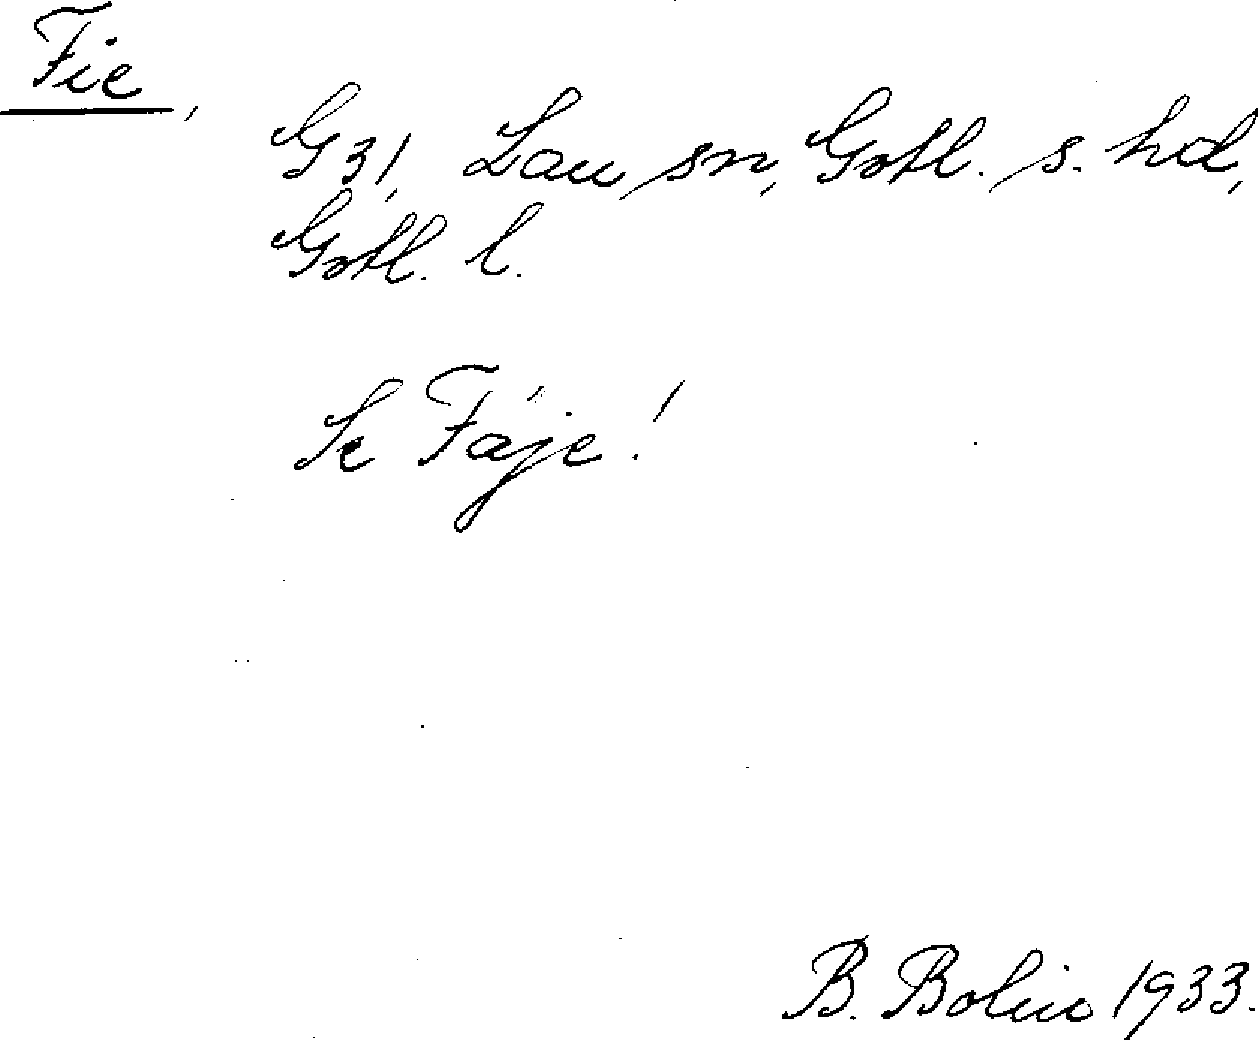 Fie,
G31, Lau sn, Gotl. s. hd,
Gotl. l.
Se Fäje!
B. Bolin 1933.